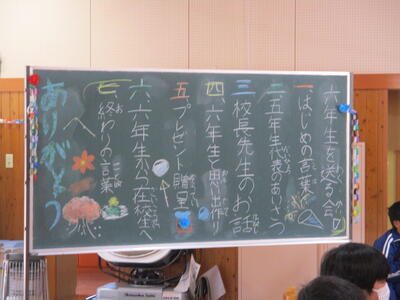 六年生を送る会
一、はじめの言葉
二、五年生代表のあいさつ
三、校長先生のお話
四、六年生と思い出作り
五、プレゼント贈呈
六、六年生から在校生へ
七、終わりの言葉
ありがとう